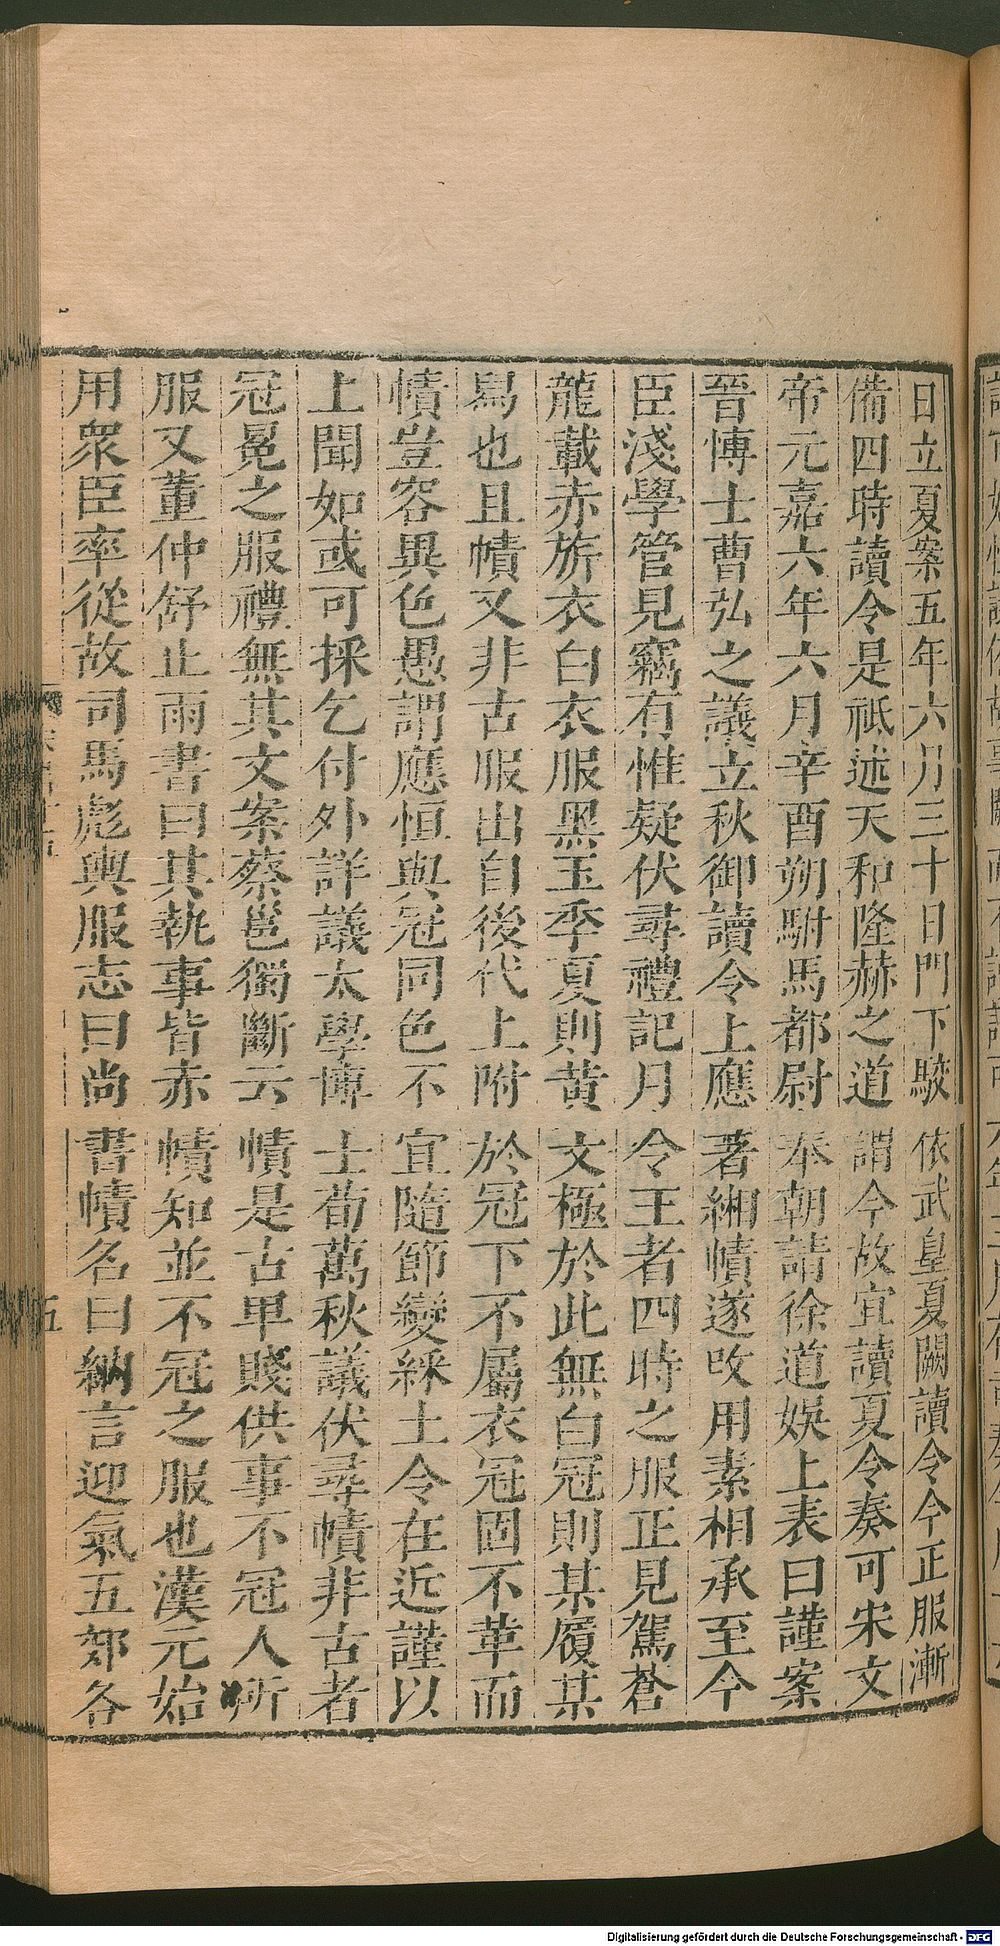 日立夏案五年六月三十日門下駮依武皇夏闕讀令今正服漸
備四時讀令是祗述天和隆赫之道謂今故宜讀夏令奏可宋文
帝元嘉六年六月辛酉朔駙馬都尉奉朝請徐道娛上表曰謹案
晉愽士曹弘之議立秋御讀令上應著緗幘遂攺用素相承至今
臣淺學管見竊有惟疑伏尋禮記月令王者四時之服正見駕蒼
龍載赤旂衣白衣服黑玉季夏則黃文極於此無白冠則某履某
舄也且幘又非古服出自後代上附於冠下不屬衣冠固不革而
幘豈容異色愚謂應恒與冠同色不宜隨節變綵土令在近謹以
上聞如或可採乞付外詳議太學愽士荀萬秋議伏尋幘非古者
冠冕之服禮無其文案蔡邕獨斷云幘是古卑賤供事不冠人所
服又董仲舒止雨書曰其執事皆赤幘知並不冠之服也漢元始
用衆臣率從故司馬彪輿服志曰尚書幘名曰納言迎氣五郊各
五
Digitalisierung gefördert durch die Deutsche Forschungsgemeinschaft - DFG